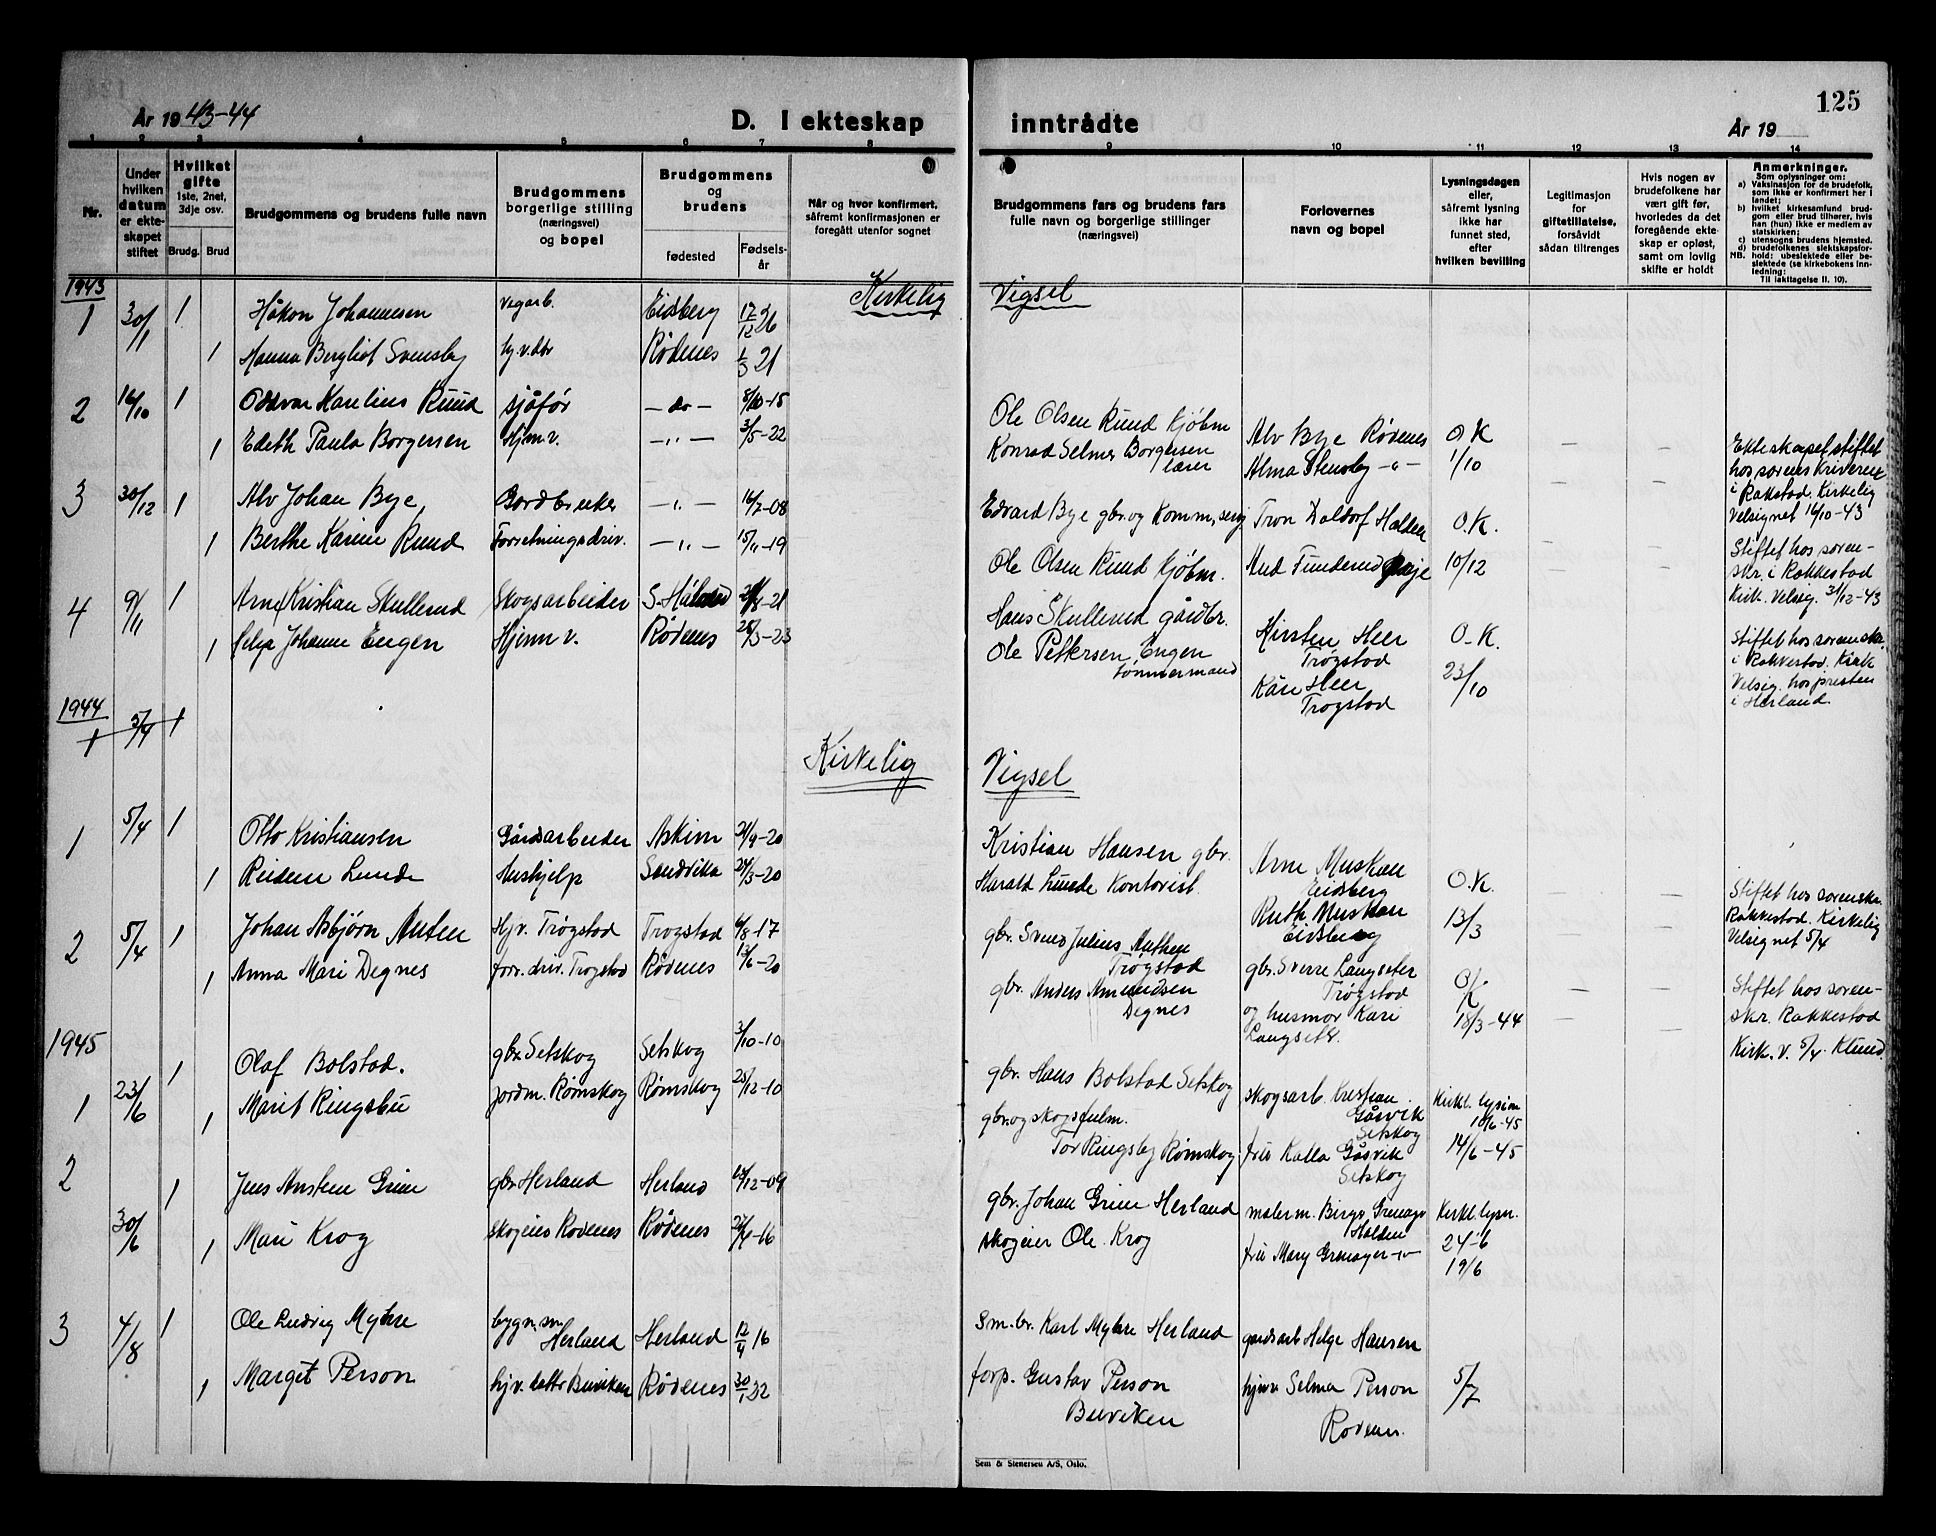 125
År 19 43-44
D. I ekteskap
inntrådte
År 19
1 2 3 4 5 6 7 8
9 10 11 12 13 14
Nr.
Under hvilken datum er ekteskapet stiftet
Hvilket gifte 1ste, 2net, 3dje osv.
Brudg. Brud
Brudgommens og brudens fulle navn
Brudgommens borgerlige stilling (næringsvei) og bopel
Brudgommens og brudens
fødested
Fødselsår
Når og hvor konfirmert, såfremt konfirmasjonen er foregått utenfor sognet
Brudgommens fars og brudens fars fulle navn og borgerlige stillinger (næringsvei)
Forlovernes navn og bopel
Lysningsdagen eller, såfremt lysning ikke har funnet sted, efter hvilken bevilling
Legitimasjon for giftetillatelse, forsåvidt sådan tiltrenges
Hvis nogen av brudefolkene har vært gift før, hvorledes da det foregående ekteskap er opløst, samt om lovlig skifte er holdt
Anmerkninger.
Som oplysninger om:
a) Vaksinasjon for de brudefolk, som ikke er konfirmert her i landet;
b) hvilket kirkesamfund brudgom eller brud tilhører, hvis han (hun) ikke er medlem av statskirken;
c) utensogns brudens hjemsted.
d) brudefolkenes slektskapsforhold: ubeslektede eller beslektede (se kirkebokens innledning:
NB.
Til iakttagelse II. 10).
1943
Kirkelig Vigsel
1 30/1 1 Håkon Johannesen vegarb. Eidsberg 17/12 26
1 Hanna Bergliot Svensby hj.v.dtr Rødenes 1/3 21
2 16/10 1 Oddvar Kaulius Ruud sjåfør — do — 8/10-15
Ole Olsen Ruud kjøbm Alv Bye Rødenes O.K
1 Edith Paula Borgersen Hjem v. — „ — 3/5-22
Konrad Selmer Borgersen lærer Alma Stensby -„- 1/10
Ekteskapet stiftet
hos sorenskriveren
i Rakkestad. Kirkelig
Velsignet 16/10-43
3 30/12 1 Alv Johan Bye Gardbruker — „ — 16/2-08
Edvard Bye gbr. og Komm. Tron Daldorf Halden O.K.
1 Berthe Karine Ruud Forretningsdriv. — „ — 15/11-19
Ole Olsen Ruud kjøbm. Aud 10/12
Stiftet hos soren-
skr. i Rakkestad
Kirk. Velsig. 31/12-43
4 9/11 1 Arne Kristian Skullerud Skogsarbeider S. Høland 8-21
Hans Skullerud gårdbr. Kirsten Heer Trøgstad O.K.
1 Helga Johanne Engen Hjem v. Rødenes 3-23
Ole Pettersen Engen tømmermand Kåre Heer Trøgstad 23/10
Stiftet hos sorenskr.
i Rakkestad. Kirk
Velsig. hos presten
i Herland.
1944
1 5/4 1
Kirkelig Vigsel
1 5/4 1 Otto Kristiansen Gårdsarbeider Askim 21/9-20
Kristian Hansen gbr. Arne Muskau Eidsberg O.K.
1 Reidun Lunde Hushjelp Sandvika 24/3-20
Harald Lunde Kontorist. Ruth Muskau Eidsberg 13/3
Stiftet hos sorenskr.
Rakkestad. Kirkelig
Velsignet 5/4
2 5/4 1 Johan Asbjørn Auten Hjv. Trøgstad Trøgstad 6/8-17
gbr. Svend Julius Authen Trøgstad gbr. Sverre Langseter Trøgstad O/K
1 Anna Mari Degnes forr. driv. Trøgstad Rødenes 13/6-20
gbr. Anders Amundsen Degnes og husmor Kari Langseter. 18/3-44
Stiftet hos soren-
skr. Rakkestad
Kirk. v. 5/4.
1945
1 23/6 1 Olaf Bolstad. gbr. Setskog Setskog 3/10-10
gbr. Hans Bolstad Setskog skogsarb. Kristian Gåsvik Setskog Kirkl. lysin 18/6-45
1 Marit Ringsbu jordm. Rømskog Rømskog 25/12-10
gbr. og skogsfulm. Tor Ringsby Rømskog fru Kalla Gåsvik Setskog 14/6-45
2 30/6 1 Jens Austen Grim gbr. Herland Herland 12-09
gbr. Johan Grim Herland malerm. Birger Grenager Halden Kirkl. lysn. 24-6
1 Mari Krog skogeier Rødenes Rødenes 27/4-16
skogeier Ole Krog fru Mary Grenager -„- 19/6
3 4/8 1 Ole Ludvig Myhre bygn. sn. Herland Herland 12/9 16
Sm. br. Karl Myhre Herland gardsarb Helge Hansen
1 Margit Person hjv. dattr Buviken Rødenes 30/1 22
forp. Gustav Person Buviken hjmv Selma Person Rødenes. 5/7
Sem & Stenersen A/S, Oslo.